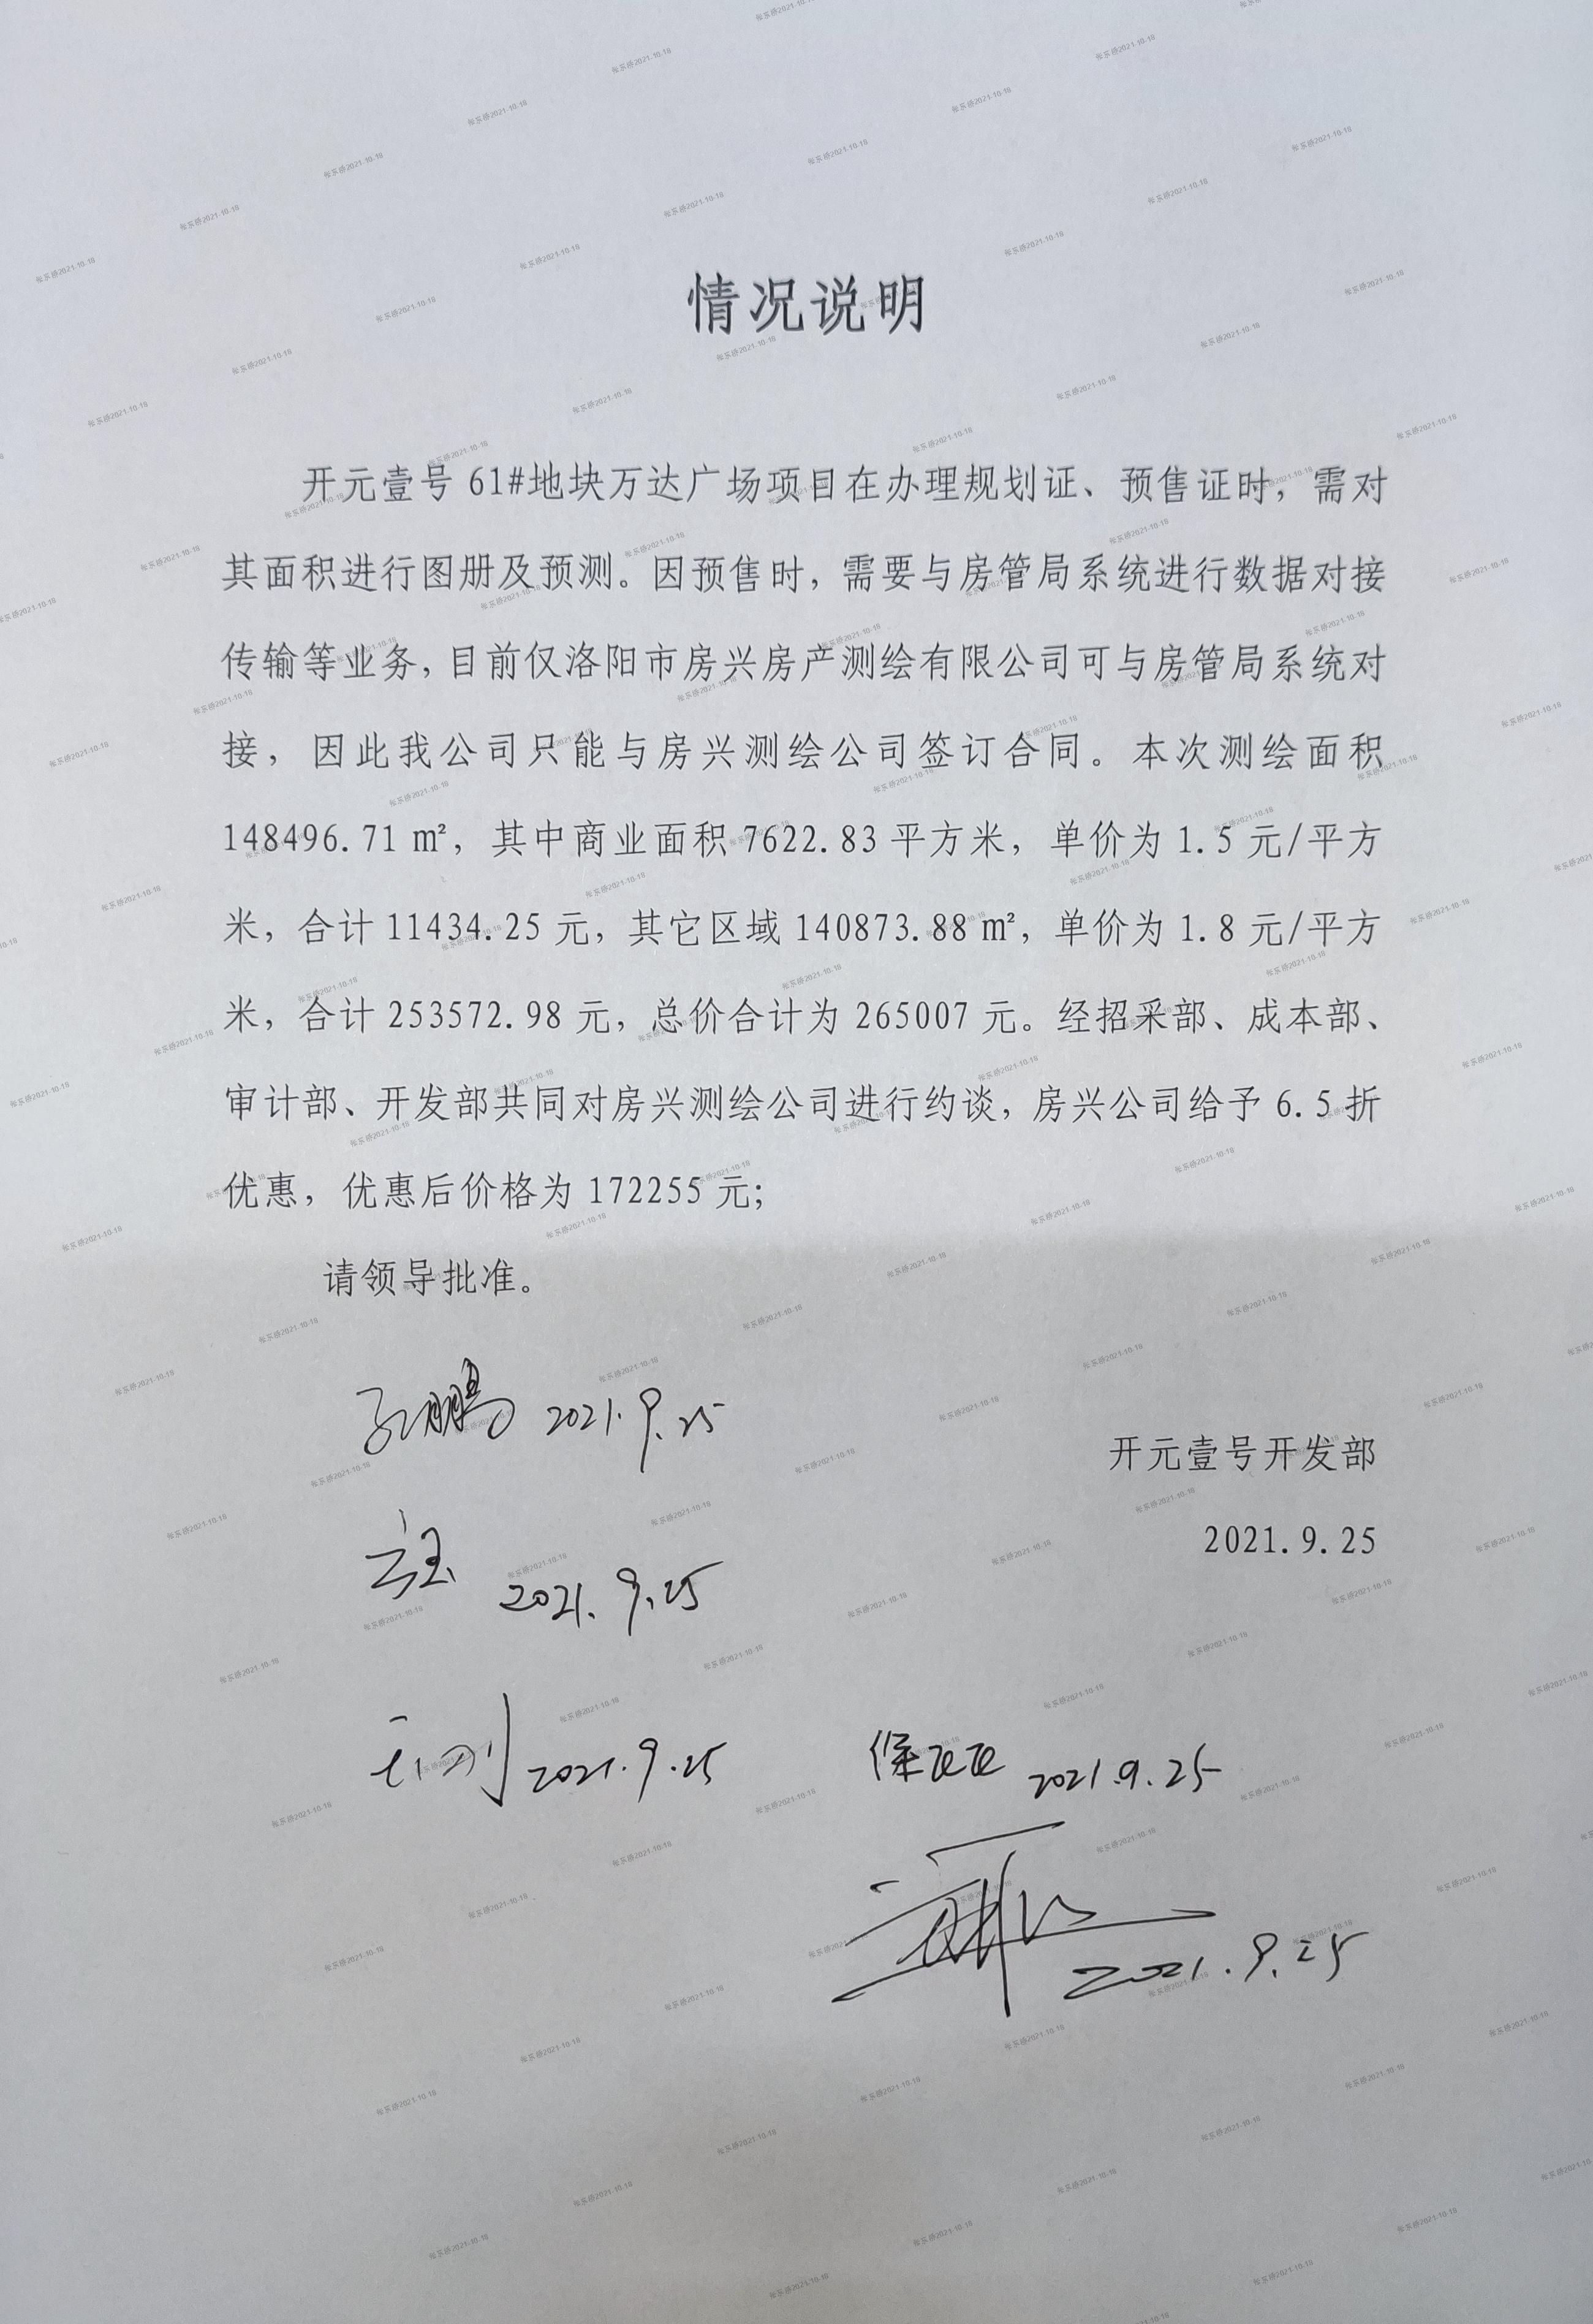 情况说明
开元壹号 61#地块万达广场项目在办理规划证、预售证时，需对
其面积进行图册及预测。因预售时，需要与房管局系统进行数据对接
传输等业务，目前仅洛阳市房兴房产测绘有限公司可与房管局系统对
接，因此我公司只能与房兴测绘公司签订合同。本次测绘面积
148496.71 ㎡，其中商业面积 7622.83 平方米，单价为 1.5 元/平方
米，合计 11434.25 元，其它区域 140873.88 ㎡，单价为 1.8 元/平方
米，合计 253572.98 元，总价合计为 265007 元。经招采部、成本部、
审计部、开发部共同对房兴测绘公司进行约谈，房兴公司给予 6.5 折
优惠，优惠后价格为 172255 元；
请领导批准。
孔鹏 2021.9.25
开元壹号开发部
2021.9.25
2021.9.25
2021.9.25
2021.9.25
2021.9.25